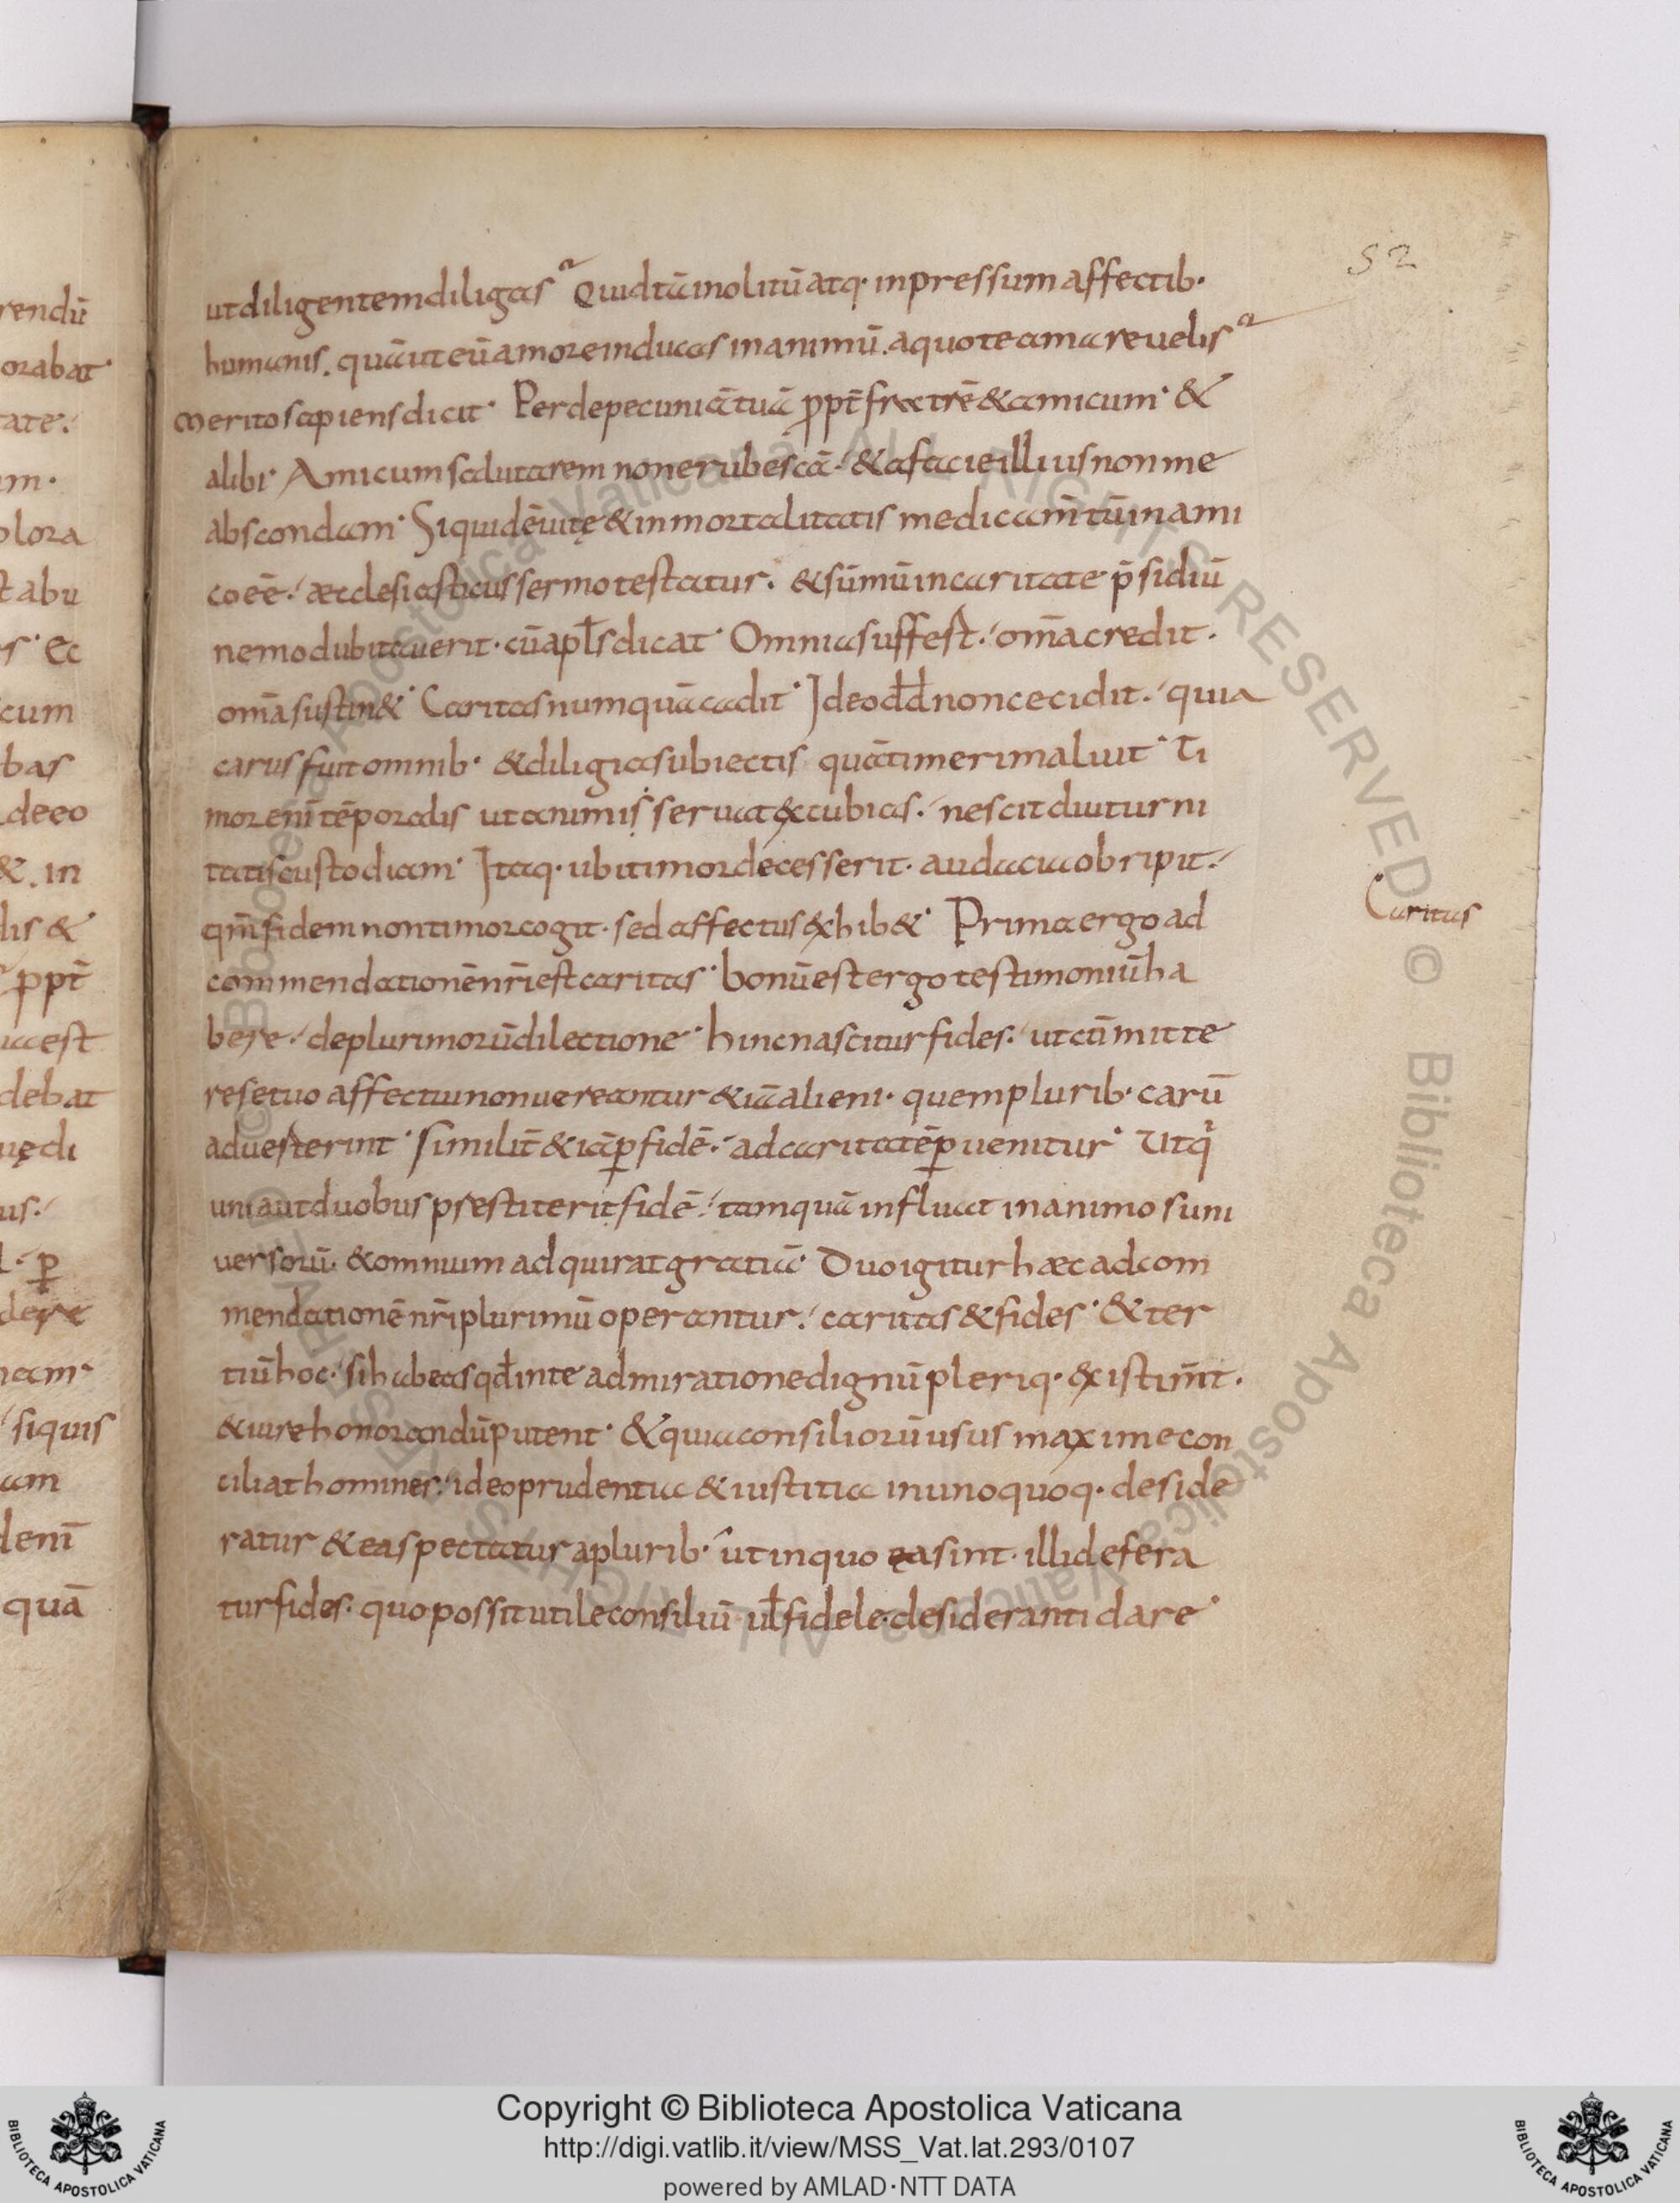 52
ut diligentem diligas? Quid tā inolitū atq· inpressum affectib·
humanis. quā ut eū amore inducas in animū. a quo te amare uelis?
Merito sapiens dicit· Perde pecuniā tuā ꝓpt̄ fratrē & amicum· &
alibi· Amicum salutarem non erubescā·/ & a facie illius non me
abscondam· Siquidē uitę & inmortalitatis medicam̄tū in ami
co eē·/ æcclesiasticus sermo testatur· & sūmū in caritate p̄sidiū
nemo dubitauerit· cū apl̄s dicat· Omnia suffert·/ om̄a credit·
om̄a sustin&· Caritas numquā cadit· Ideo dd̄ non cecidit·/ quia
carus fuit omnib· & diligi a subiectis quā timeri maluit· Ti
mor enī tēporalis ut animis seruat excubias·/ nescit diuturni
tatis custodiam· Itaq· ubi timor decesserit· audacia obripit·/
qm̄ fidem non timor cogit· sed affectus exhib&· Prima ergo ad
Caritas
commendationē nr̄i est caritas· bonū est ergo testimoniū ha
bere·/ de plurimorū dilectione· hinc nascitur fides·/ ut cū mitte
re se tuo affectui non uereantur & iā alieni· quem plurib· carū
aduerterint· similit̄ & iā ꝑ fidē·/ ad caritatē ꝑuenitur· Ut q
uni aut duobus prestiterit fidē·/ tamquā influat in animos uni
uersorū· & omnium adquirat gratiā· Duo igitur hæc ad com
mendationē nr̄i plurimū operantur·/ caritas & fides· & ter
tiū hoc·/ si habeas qd̄ in te admiratione dignū pleriq· existim̄t·
& iure honorandū putent· & quia consiliorū usus maxime con
ciliat homines·/ ideo prudentia & iustitia in unoquoq· deside
ratur & ea spectatur a plurib· ut in quo ea sint· illi defera
tur fides· quo possit utile consiliū ul̄ fidele desideranti dare·
rendū
orabat·
tate·/
m·
plora
cum
bas
deeo
&. in
lis &
ꝓpt̄
debat
siquis
am
denī
quā
Copyright © Biblioteca Apostolica Vaticana
http://digi.vatlib.it/view/MSS_Vat.lat.293/0107
powered by AMLAD·NTT DATA
BIBLIOTECA APOSTOLICA VATICANA
BIBLIOTECA APOSTOLICA VATICANA
© Biblioteca Apostolica Vaticana ALL RIGHTS RESERVED © Biblioteca Apostolica Vaticana ALL RIGHTS RESERVED